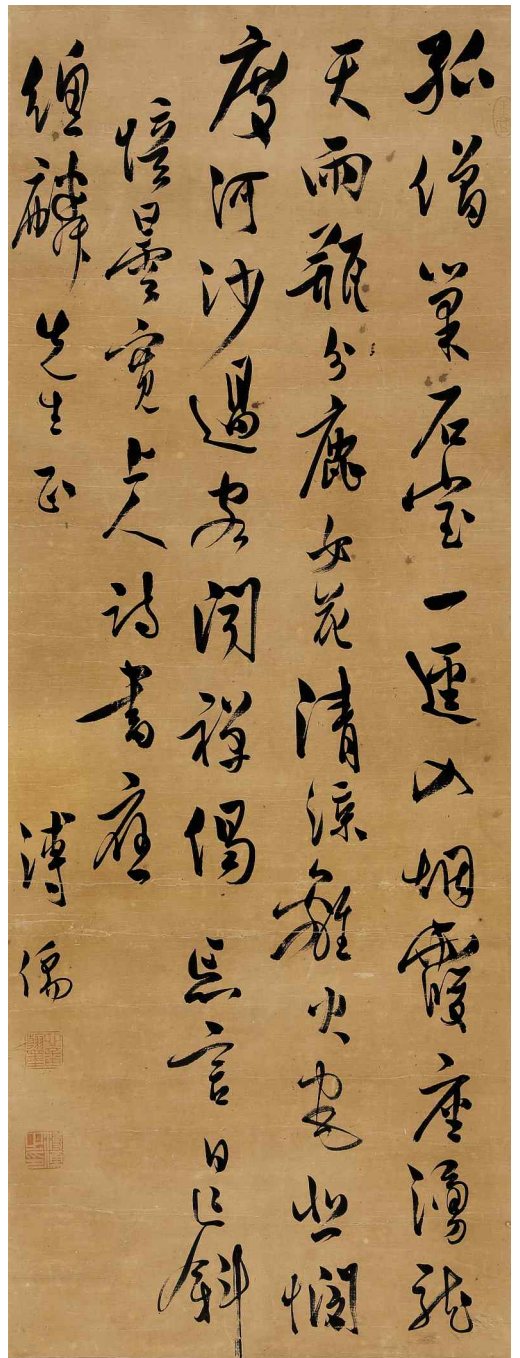 孤僧巢石室一逕入烟霞座湧龍
天雨瓶分鹿女花清涼離火宅悲憫
度河沙過客聞禪偈忘言日已斜
憶曇寬上人詩書應
麟先生正 溥儒